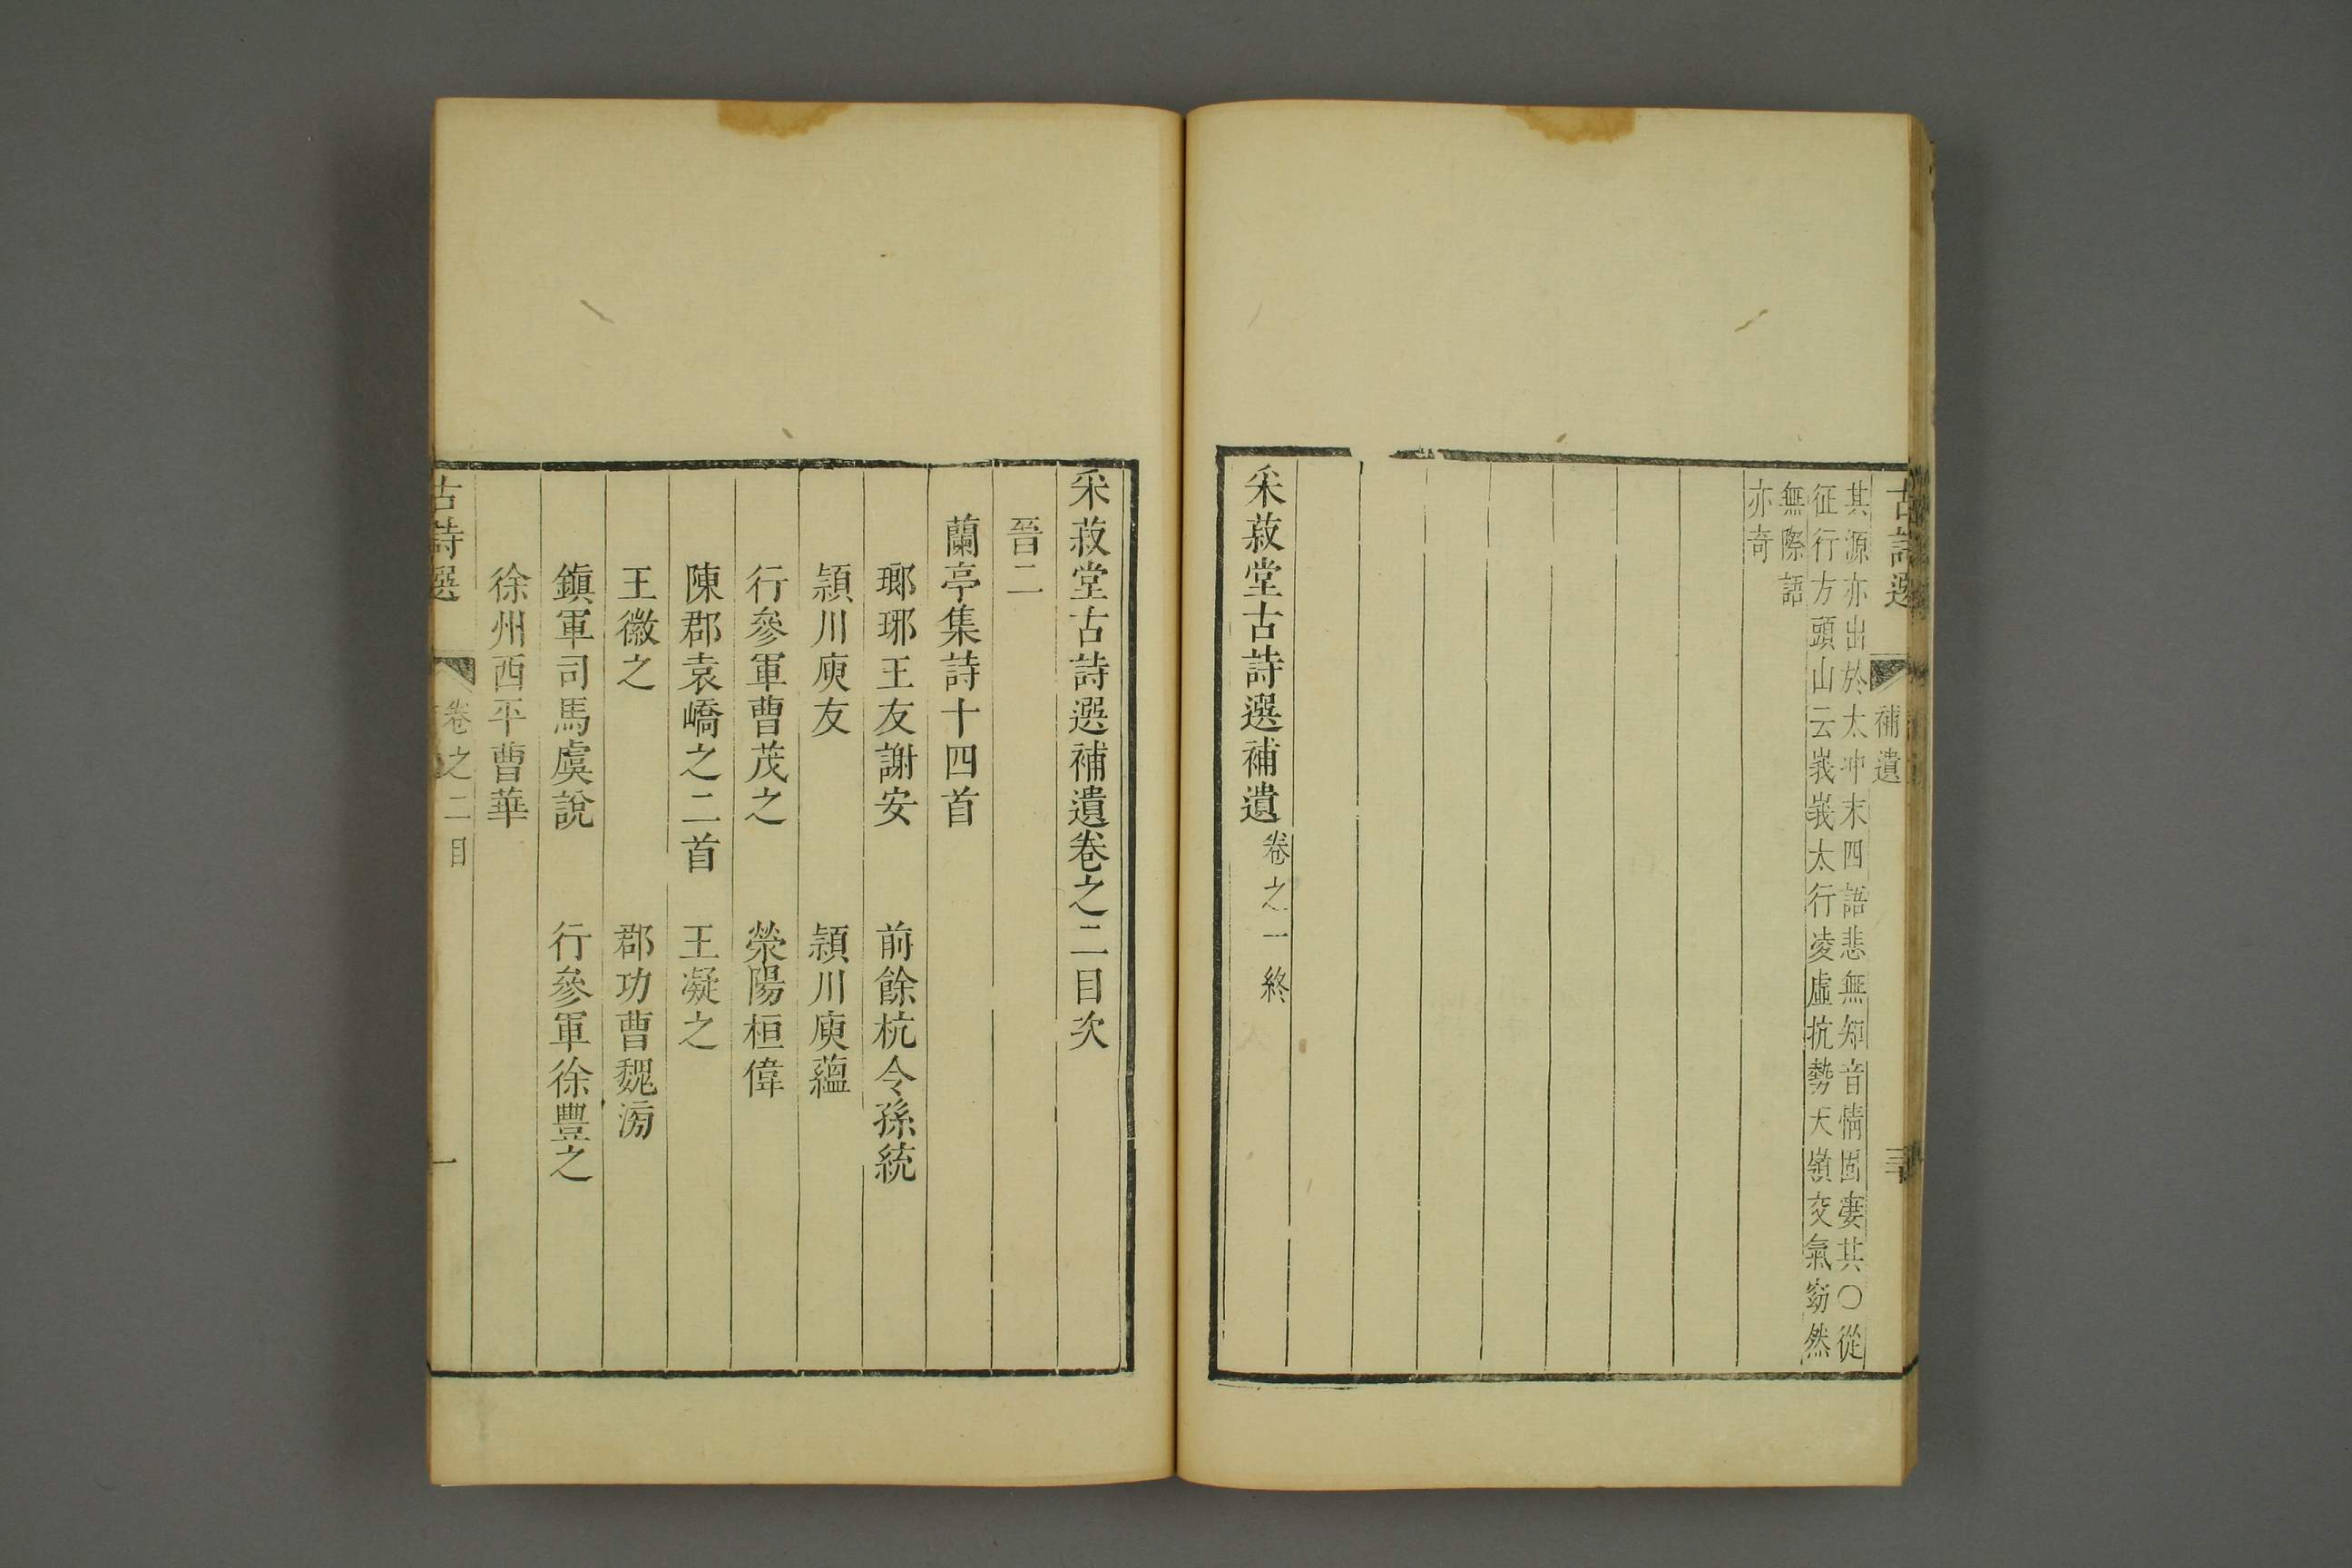 古詩選 補遺 三
其源亦出於太冲末四語悲無知音情固婁其○從
征行方頭山云峩峩太行凌虛抗勢天嶺交氣窈然
無際語
亦奇
采菽堂古詩選補遺卷之一終
采菽堂古詩選補遺卷之二目次
晉二
蘭亭集詩十四首
瑯琊王友謝安 前餘杭令孫統
潁川庾友 潁川庾蘊
行參軍曹茂之 滎陽桓偉
陳郡袁嶠之二首 王凝之
王徽之 郡功曹魏滂
鎮軍司馬虞說 行參軍徐豐之
徐州西平曹華
古詩選 卷之二目 一